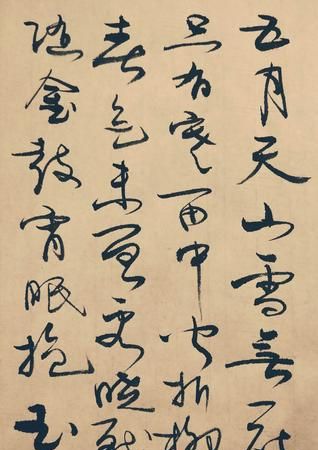 五月天山雪無花
只有寒笛中聞折柳
春色未曾看曉戰
隨金鼓宵眠抱玉